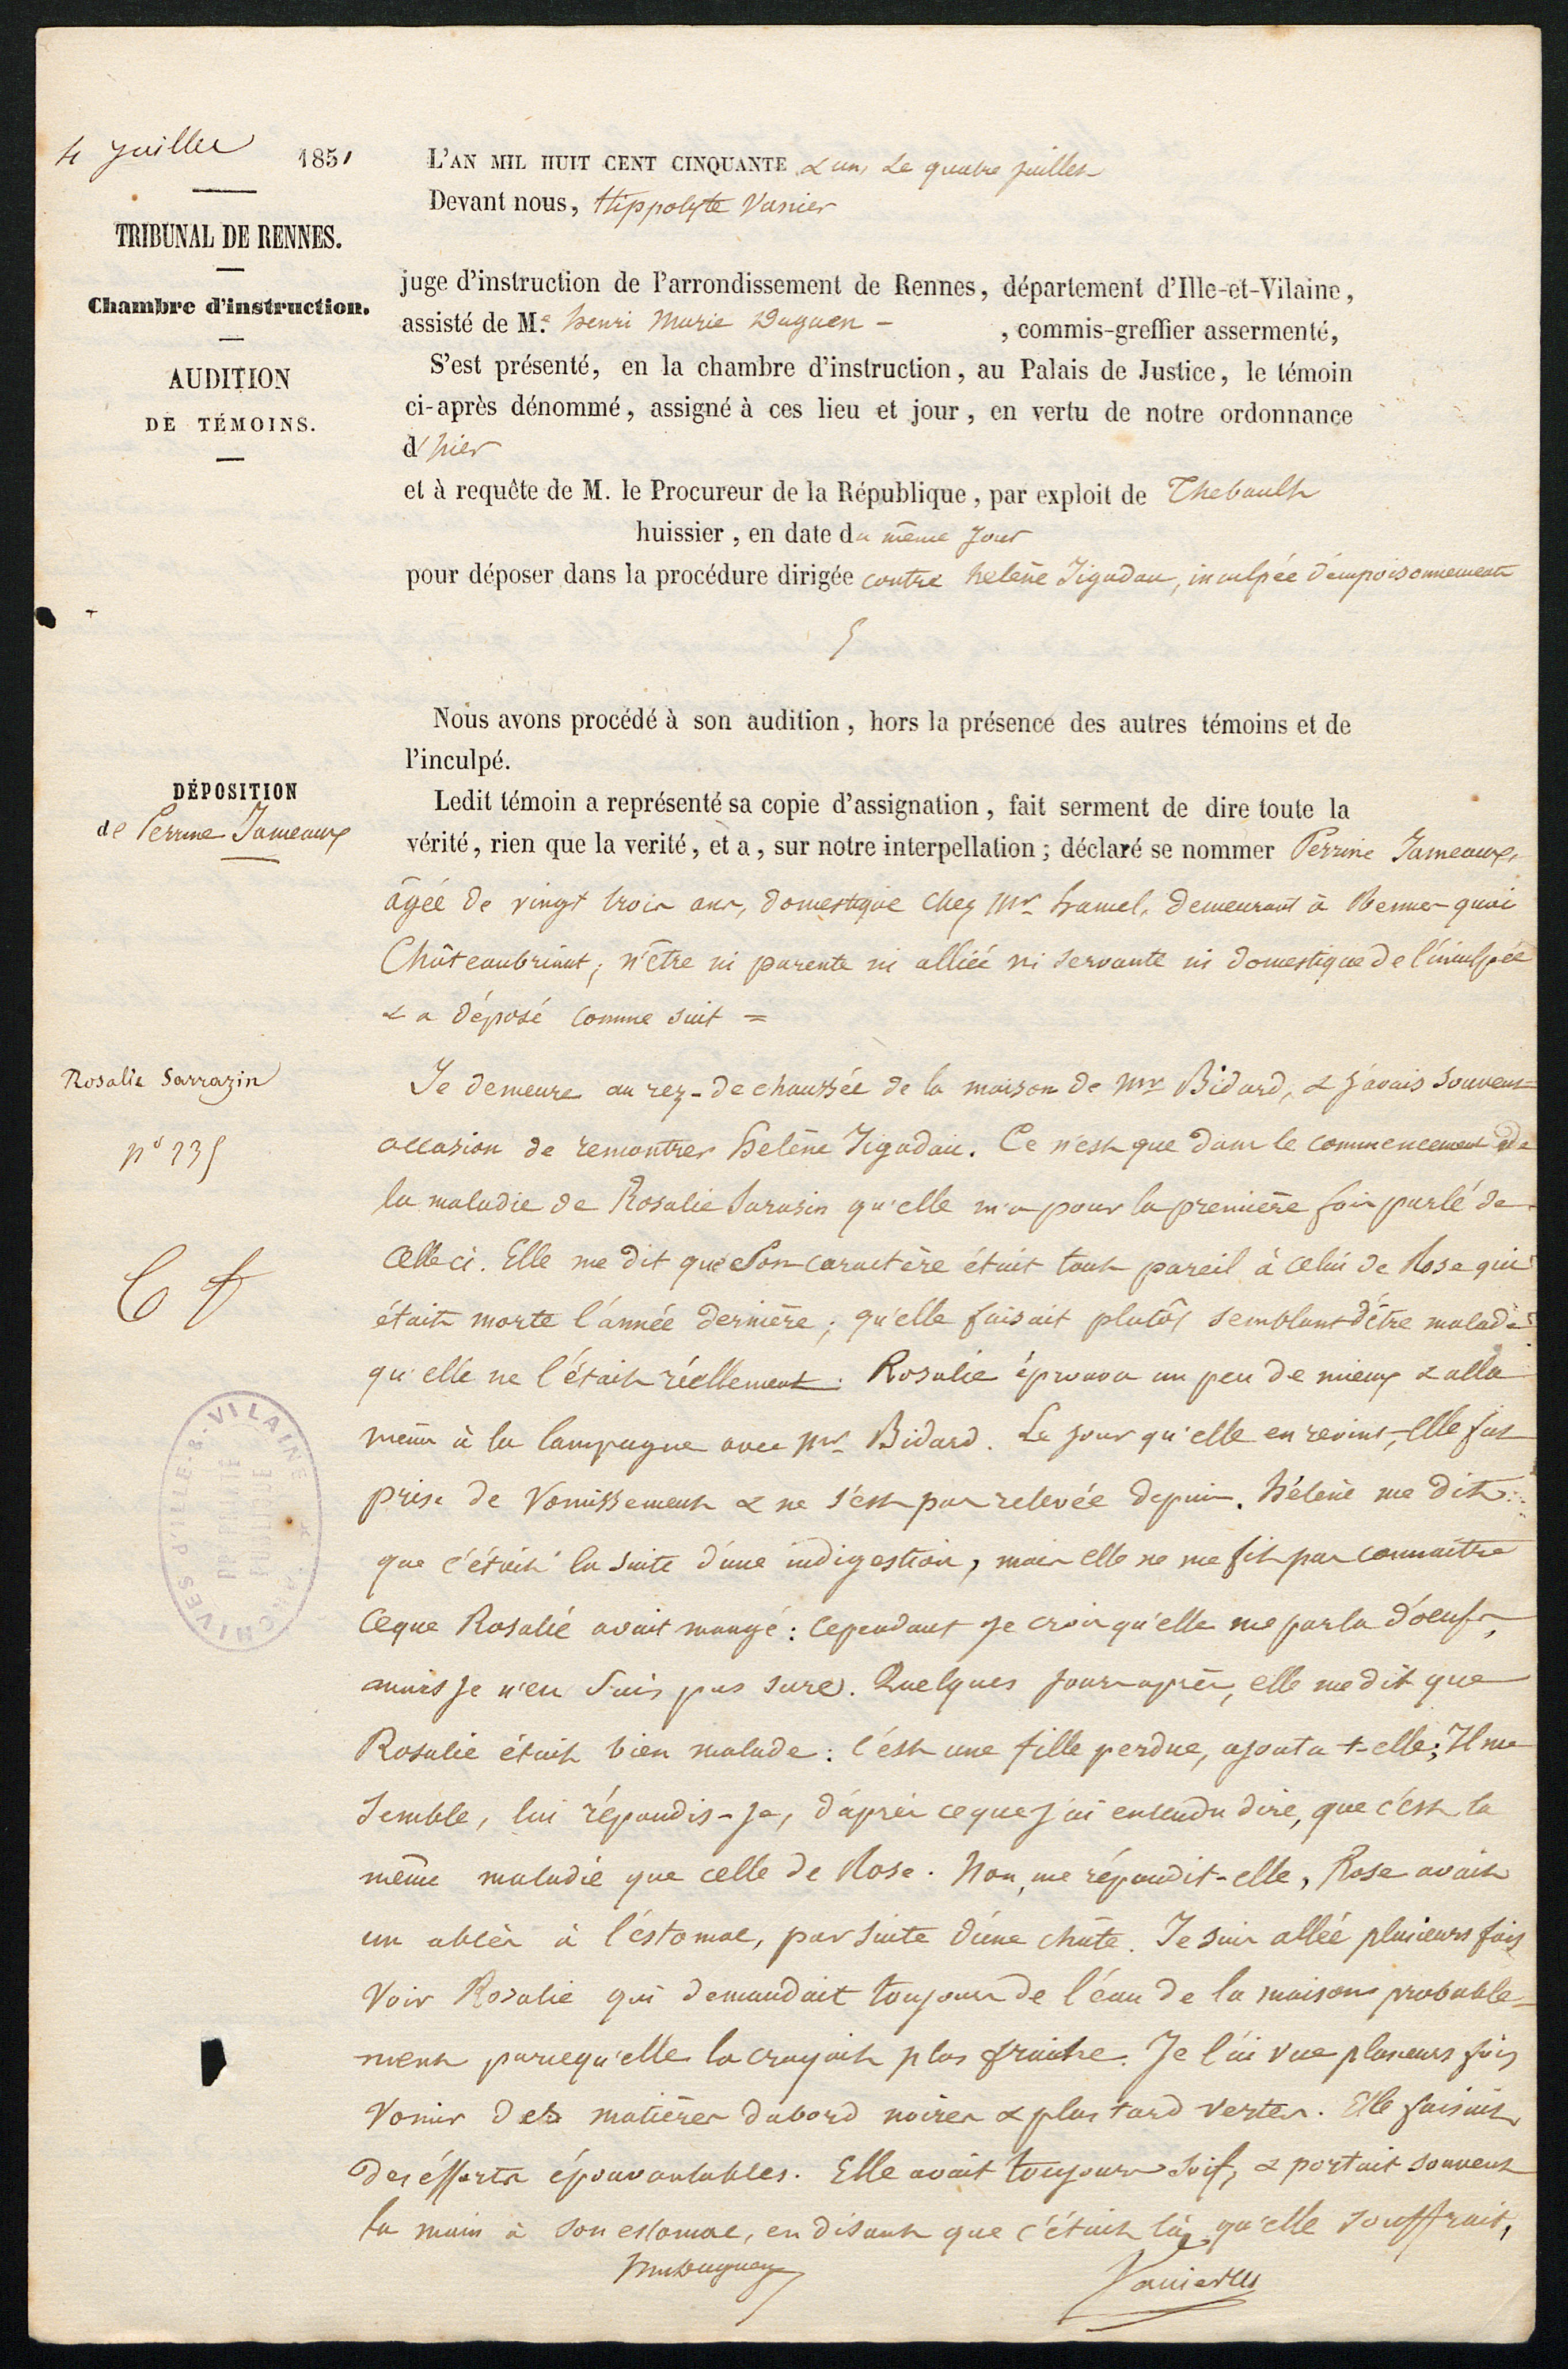 4 Juillet 1851
TRIBUNAL DE RENNES.
Chambre d'instruction.
AUDITION
DE TÉMOINS.
L'AN MIL HUIT CENT CINQUANTE & un, Le quatre juillet
Devant nous, Hippolyte Vanier
juge d'instruction de l'arrondissement de Rennes, département d'Ille-et-Vilaine,
assisté de M.e henri Marie Duguen - , commis-greffier assermenté,
S'est présenté, en la chambre d'instruction, au Palais de Justice, le témoin
ci-après dénommé, assigné à ces lieu et jour, en vertu de notre ordonnance
d'hier
et à requête de M. le Procureur de la République, par exploit de Thebault
huissier, en date du même jour
pour déposer dans la procédure dirigée contre helène Jigadau, inculpée d'empoisonnement
Nous avons procédé à son audition, hors la présence des autres témoins et de
l'inculpé.
DÉPOSITION
de Perrine Jameaux
Ledit témoin a représenté sa copie d'assignation, fait serment de dire toute la
vérité, rien que la verité, et a, sur notre interpellation; déclaré se nommer Perrine Jameaux,
âgée de vingt trois ans, domestique chez Mr hamel, demeurant à Rennes quai
Châteaubriant; n'être ni parente ni alliée ni servante ni domestique de l'inculpée
& a déposé comme suit =
Rosalie Sarrazin
n° 235
Je demeure au rez-de chaussée de la maison de Mr Bidard, & j'avais souvent
occasion de remontrer helène Jigadau. Ce n'est que dans le commencement de
la maladie de Rosalie Sarasin qu'elle m'a pour la première fois parlé de
celle ci. Elle me dit que son caractère était tout pareil à celui de Rose qui
était morte l'année dernière; qu'elle faisait plutôt semblant d'être malade
qu'elle ne l'était réellement. Rosalie éprouva un peu de mieux & alla
même à la campagne avec Mr Bidard. Le jour qu'elle en revint, elle fut
prise de vomissement & ne s'est pas relevée depuis. hélène me dit
que c'était la suite d'une indigestion, mais elle ne me fit pas connaitre
ce que Rosalie avait mangé: cependant je crois qu'elle me parla d'oeufs,
mais je n'en suis pas sure. Quelques jours après, elle me dit que
Rosalie était bien malade: c'est une fille perdue, ajouta t-elle; Il me
semble, lui répondis-je, d'après ce que j'ai entendu dire, que c'est la
même maladie que celle de Rose. Non, me répondit-elle, Rose avait
un abcès à l'éstomac, par suite d'une chûte. Je suis allée plusieurs fois
voir Rosalie qui demandait toujours de l'eau de la maison probable-
ment parcequ'elle la croyait plus fraiche. Je l'ai vue plusieurs fois
vomir des matières dabord noires & plus tard vertes. Elle faisait
des éfforts épouvantables. Elle avait toujours soif, & portait souvent
la main à son estomac, en disant que c'était là qu'elle souffrait,
hmDuguen
Vanier
ARCHIVES D'ILLE-&-VILAINE
PROPRIÉTÉ
PUBLIQUE